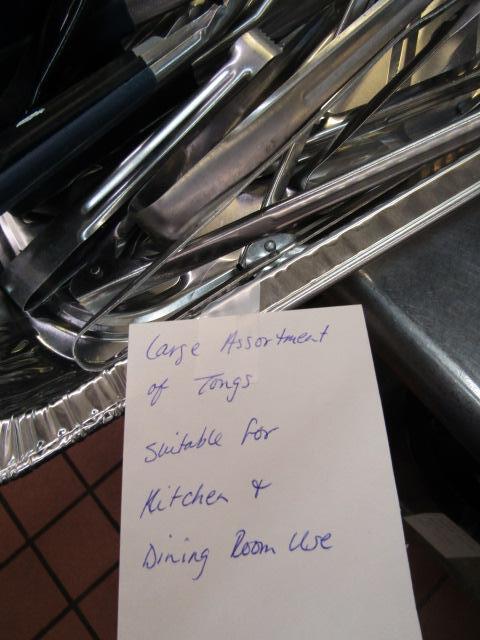 Large Assortment
of Tongs
Suitable for
Kitchen &
Dining Room Use